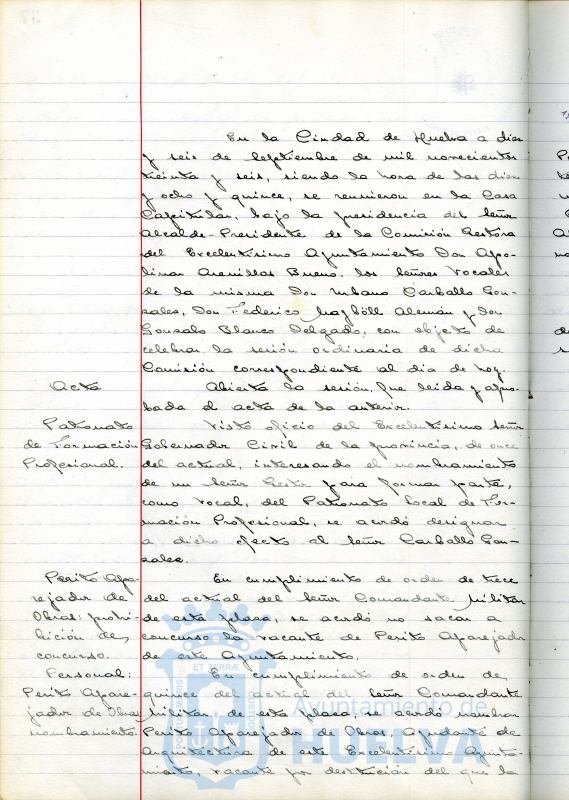 En la Ciudad de Huelva a diez
y seis de Septiembre de mil novecientos
treinta y seis, siendo la hora de las diez
y ocho y quince, se reunieron en la Casa
Capitular, bajo la presidencia del Señor
Alcalde-Presidente de la Comisión Gestora
del Excelentísimo Ayuntamiento Don Apo-
linar Arenillas Bueno, los Señores Vocales
de la misma Don Urbano Carballo Gon-
sales, Don Federico Alemán y Don
Gonsalo Blanco Delgado, con objeto de
celebrar la sesión ordinaria de dicha
Comisión correspondiente al día de hoy.
Acta
Abierta la sesión, fue leida y apro-
bada el acta de la anterior.
Patronato
de Formación
Profesional.
Visto oficio del Excelentísimo Señor
Gobernador Civil de la provincia, de once
del actual, interesando el nombramiento
de un Señor Gestor para formar parte,
como vocal, del Patronato local de For-
mación Profesional, se acordó designar
a dicho efecto al Señor Carballo Gon-
sales.
Perito Apa-
rejador de
Obras: prohi-
bición de
concurso.
En cumplimiento de orden de trece
del actual del Señor Comandante Militar
de esta plaza, se acordó no sacar a
concurso la vacante de Perito Aparejador
de este Ayuntamiento.
Personal:
Perito Apare-
jador de Obras
nombramiento.
En cumplimiento de orden de
quince del actual del Señor Comandante
Militar de esta plaza, se acordó nombrar
Perito Aparejador de Obras, Ayudante de
Arquitectura de este Excelentísimo Ayunta-
miento, vacante por destitución del que la
ET TERRÆ
Ayuntamiento de
HUELVA